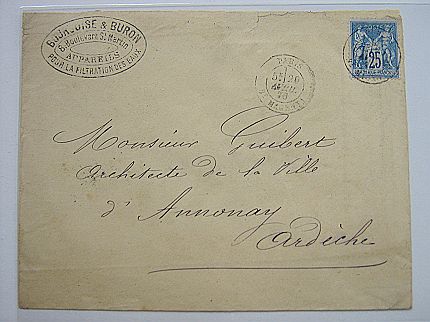 BOURGOISE & BURON
8, Boulevard St Martin
APPAREILS
POUR LA FILTRATION DES EAUX
PARIS
5E 26
AVRIL
79
25
Monsieur Guibert
Architecte de la Ville
d'Annonay
Ardèche